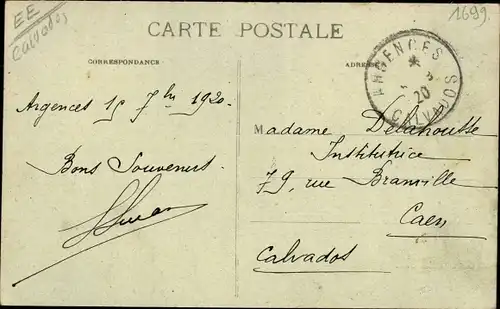 EE
Calvados
1699.
CARTE POSTALE
CORRESPONDANCE
ADRESSE
ARGENCES
20
CALVADOS
Argences 15 7bre 1920.
Bons Souvenirs
Madame Delahoutte
Institutrice
79, rue Branville
Caen
Calvados